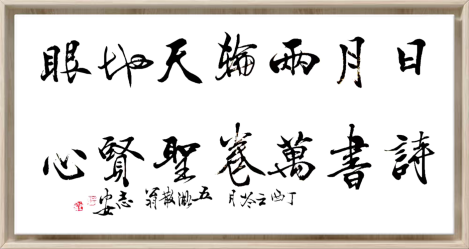 日月兩輪天地眼
詩書萬卷聖賢心
丁酉冬月 五湖散翁 志安